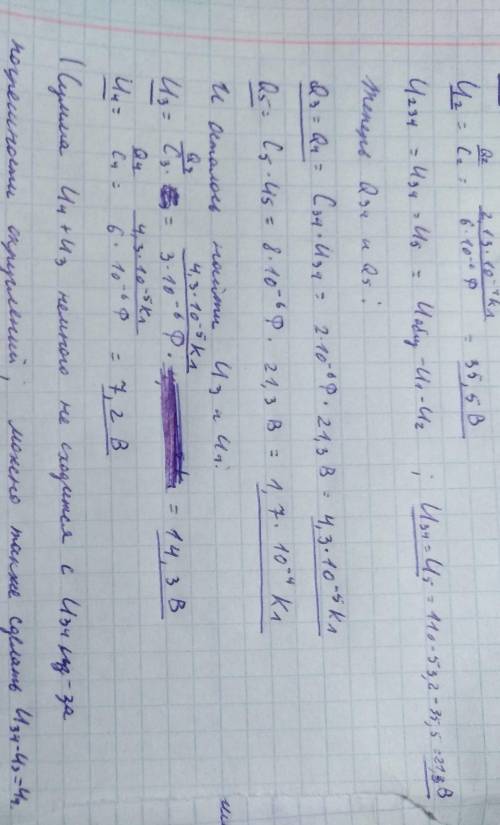 U₂ = Q₂/C₂ = 2,13·10⁻⁴Кл/6·10⁻⁶Ф = 35,5 В
U₂₃₄ = U₃₄ = U₅ = Uобщ - U₁ - U₂ ; U₃₄ = U₅ = 110 - 53,2 - 35,5 = 21,3 В
Теперь Q₃₄ и Q₅:
Q₃ = Q₄ = C₃₄·U₃₄ = 2·10⁻⁶Ф · 21,3 В = 4,3·10⁻⁵ Кл
Q₅ = C₅·U₅ = 8·10⁻⁶Ф · 21,3 В = 1,7·10⁻⁴ Кл
И осталось найти U₃ и U₄:
U₃ = Q₃/C₃ = 4,3·10⁻⁵Кл/3·10⁻⁶Ф = 14,3 В
U₄ = Q₄/C₄ = 4,3·10⁻⁵Кл/6·10⁻⁶Ф = 7,2 В
(Сумма U₄ + U₃ немного не сходится с U₃₄ из-за
погрешности округлений, можно также сделать U₃₄-U₃=U₄